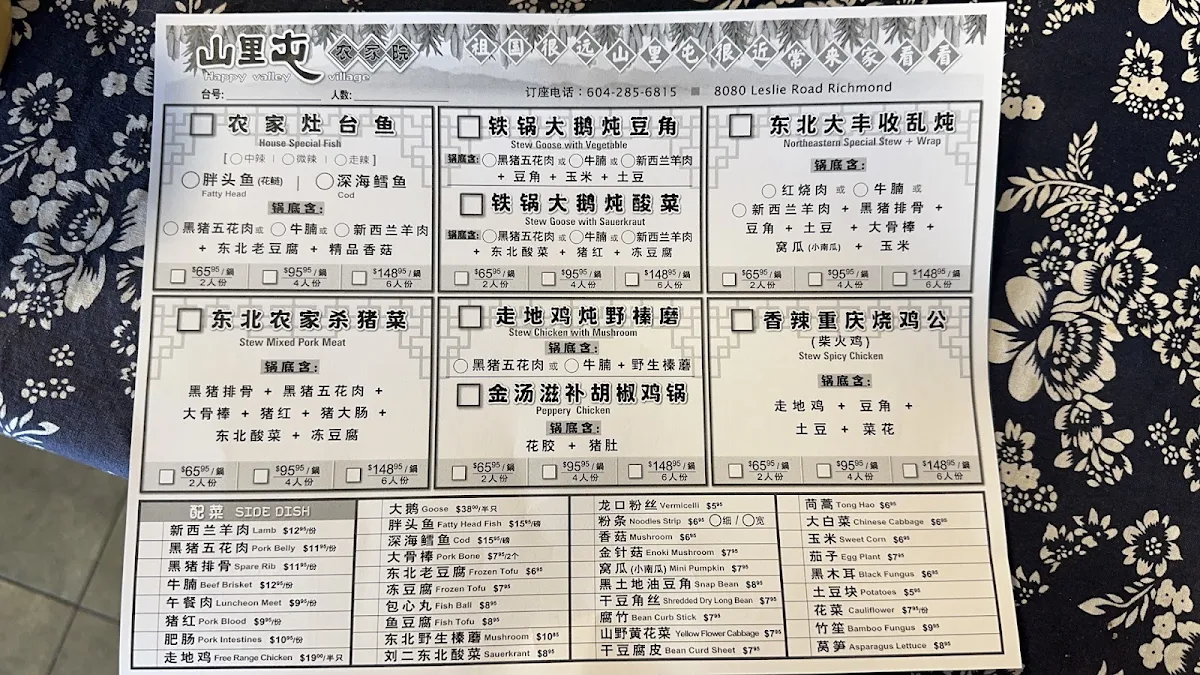 山里屯 农家院 祖国很远山里屯很近常来家看看
Happy valley village
台号: 人数: 订座电话：604-285-6815 ■ 8080 Leslie Road Richmond
农家灶台鱼
House Special Fish
[○中辣 | ○微辣 | ○走辣]
○胖头鱼(花鲢) | ○深海鳕鱼
Fatty Head Cod
锅底含:
○黑猪五花肉或○牛腩或○新西兰羊肉
+ 东北老豆腐 + 精品香菇
$65.95/鍋 $95.95/鍋 $148.95/鍋
2人份 4人份 6人份
铁锅大鹅炖豆角
Stew Goose with Vegetable
锅底含:○黑猪五花肉或○牛腩或○新西兰羊肉
+ 豆角 + 玉米 + 土豆
铁锅大鹅炖酸菜
Stew Goose with Sauerkraut
锅底含:○黑猪五花肉或○牛腩或○新西兰羊肉
+ 东北酸菜 + 猪红 + 冻豆腐
$65.95/鍋 $95.95/鍋 $148.95/鍋
2人份 4人份 6人份
东北大丰收乱炖
Northeastern Special Stew + Wrap
锅底含:
○红烧肉或○牛腩或
○新西兰羊肉 + 黑猪排骨 +
豆角 + 土豆 + 大骨棒 +
窝瓜(小南瓜) + 玉米
$65.95/鍋 $95.95/鍋 $148.95/鍋
2人份 4人份 6人份
东北农家杀猪菜
Stew Mixed Pork Meat
锅底含:
黑猪排骨 + 黑猪五花肉 +
大骨棒 + 猪红 + 猪大肠 +
东北酸菜 + 冻豆腐
$65.95/鍋 $95.95/鍋 $148.95/鍋
2人份 4人份 6人份
走地鸡炖野榛磨
Stew Chicken with Mushroom
锅底含:
○黑猪五花肉或○牛腩 + 野生榛蘑
金汤滋补胡椒鸡锅
Peppery Chicken
锅底含:
花胶 + 猪肚
$65.95/鍋 $95.95/鍋 $148.95/鍋
2人份 4人份 6人份
香辣重庆烧鸡公
(柴火鸡)
Stew Spicy Chicken
锅底含:
走地鸡 + 豆角 +
土豆 + 菜花
$65.95/鍋 $95.95/鍋 $148.95/鍋
2人份 4人份 6人份
配菜 SIDE DISH
新西兰羊肉 Lamb $12.95/份
黑猪五花肉 Pork Belly $11.95/份
黑猪排骨 Spare Rib $11.95/份
牛腩 Beef Brisket $12.95/份
午餐肉 Luncheon Meet $9.95/份
猪红 Pork Blood $9.95/份
肥肠 Pork Intestines $10.95/份
走地鸡 Free Range Chicken $19.00/半只
大鹅 Goose $38.00/半只
胖头鱼 Fatty Head Fish $15.95/磅
深海鳕鱼 Cod $15.95/磅
大骨棒 Pork Bone $7.95/2个
东北老豆腐 Frozen Tofu $6.95
冻豆腐 Frozen Tofu $7.95
包心丸 Fish Ball $8.95
鱼豆腐 Fish Tofu $8.95
东北野生榛蘑 Mushroom $10.95
刘二东北酸菜 Sauerkrant $8.95
龙口粉丝 Vermicelli $5.95
粉条 Noodles Strip $6.95 ○细/○宽
香菇 Mushroom $6.95
金针菇 Enoki Mushroom $7.95
窝瓜(小南瓜) Mini Pumpkin $7.95
黑土地油豆角 Snap Bean $8.95
干豆角丝 Shredded Dry Long Bean $7.95
腐竹 Bean Curb Stick $7.95
山野黄花菜 Yellow Flower Cabbage $7.95
干豆腐皮 Bean Curd Sheet $7.95
茼蒿 Tong Hao $6.95
大白菜 Chinese Cabbage $6.95
玉米 Sweet Corn $6.95
茄子 Egg Plant $7.95
黑木耳 Black Fungus $6.95
土豆块 Potatoes $5.95
花菜 Cauliflower $7.95/份
竹笙 Bamboo Fungus $9.95
莴笋 Asparagus Lettuce $8.95